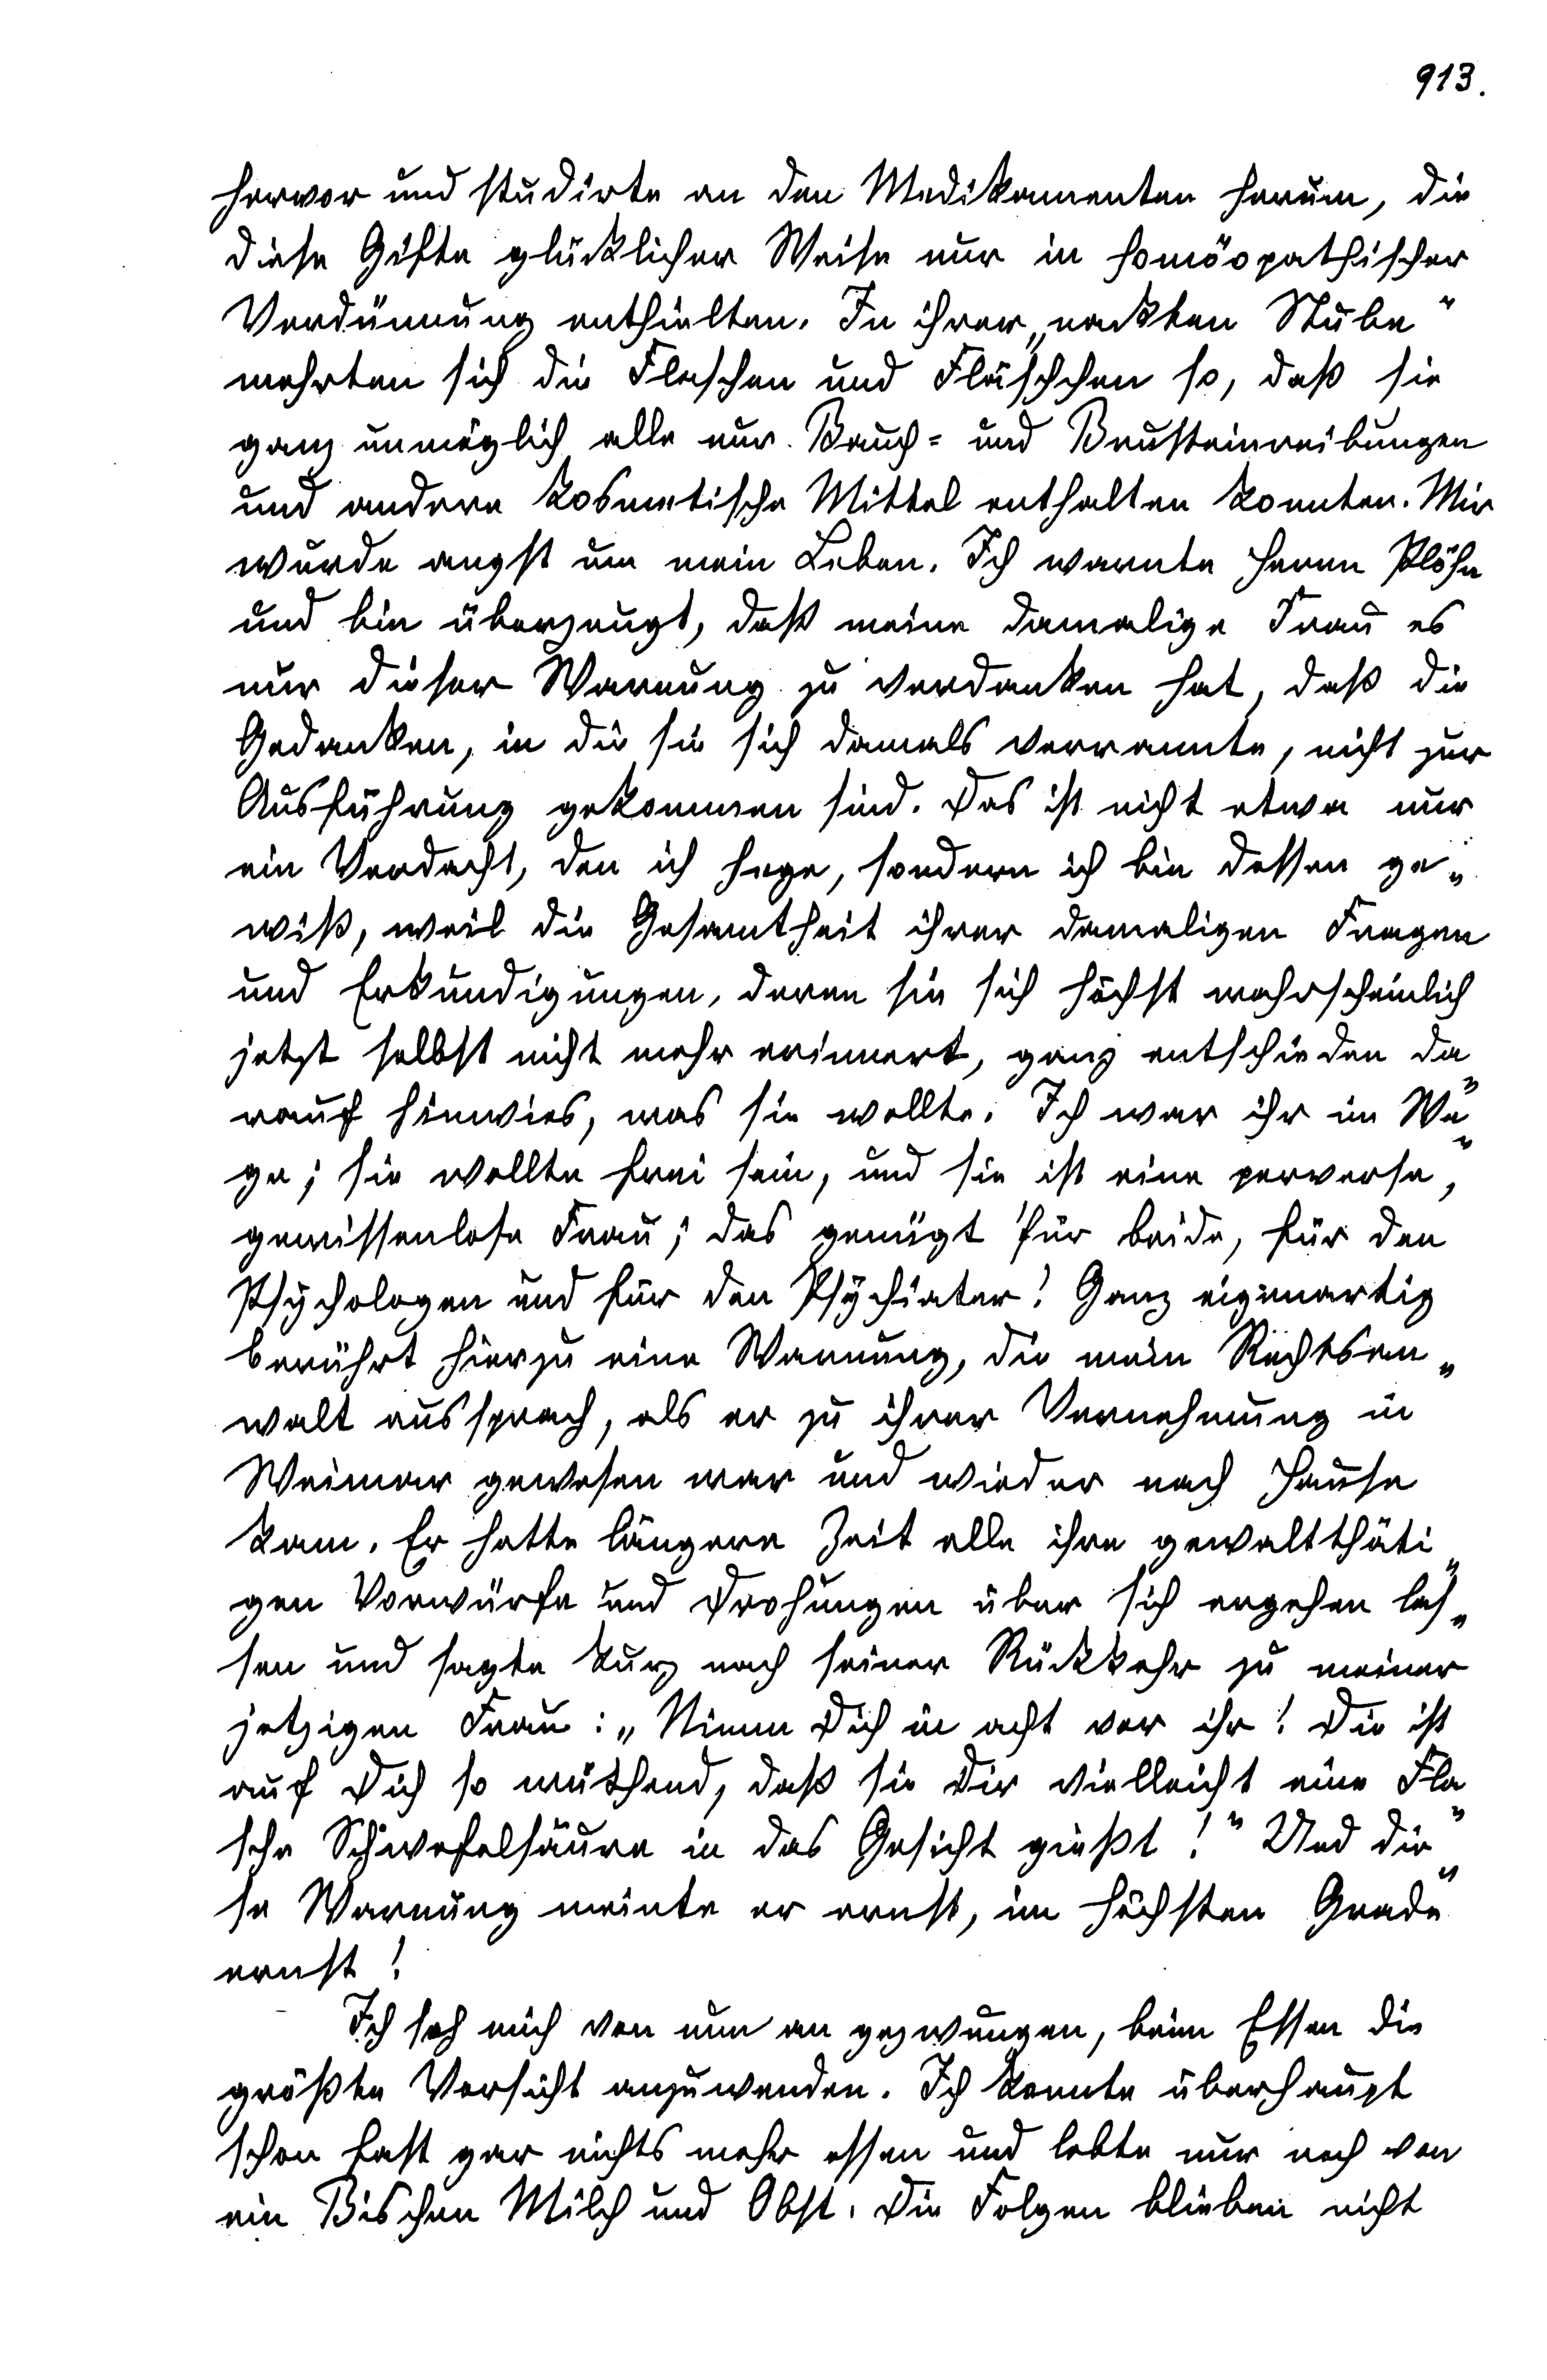 913.
hervor und studirte an den Medikamenten herum, die
diese Gifte glücklicher Weise nur in homöopathischer
Verdünnung enthielten. In ihrer „nackten Stube“
mehrten sich die Flaschen und Fläschchen so, daß sie
ganz unmöglich alle nur Bauch- und Brusteinreibungen
und andere kosmetische Mittel enthalten konnten. Mir
wurde angst um mein Leben. Ich warnte Herrn Plöhn
und bin überzeugt, daß meine damalige Frau es
nur dieser Warnung zu verdanken hat, daß die
Gedanken, in die sie sich damals verrannte, nicht zur
Ausführung gekommen sind. Das ist nicht etwa nur
ein Verdacht, den ich hege, sondern ich bin dessen ge-
wiß, weil die Gesamtheit ihrer damaligen Fragen
und Erkundigungen, deren sie sich höchst wahrscheinlich
jetzt selbst nicht mehr erinnert, ganz entschieden da-
rauf hinwies, was sie wollte. Ich war ihr im We-
ge; sie wollte frei sein, und sie ist eine perverse,
gewissenlose Frau; das genügt für beide, für den
Psychologen und für den Psychiater! Ganz eigenartig
berührt hierzu eine Warnung, die mein Rechtsan-
walt aussprach, als er zu ihrer Vernehmung in
Weimar gewesen war und wieder nach Hause
kam. Er hatte längere Zeit alle ihre gewaltthäti-
gen Vorwürfe und Drohungen über sich ergehen las-
sen und sagte kurz nach seiner Rückkehr zu meiner
jetzigen Frau: „Nimm Dich in acht vor ihr! Die ist
auf Dich so wüthend, daß sie Dir vielleicht eine Fla-
sche Schwefelsäure in das Gesicht gießt!“ Und die-
se Warnung meinte er ernst, im höchsten Grade
ernst!
Ich sah mich von nun an gezwungen, beim Essen die
größte Vorsicht anzuwenden. Ich konnte überhaupt
schon fast gar nichts mehr essen und lebte nur noch von
ein Bischen Milch und Obst. Die Folgen blieben nicht